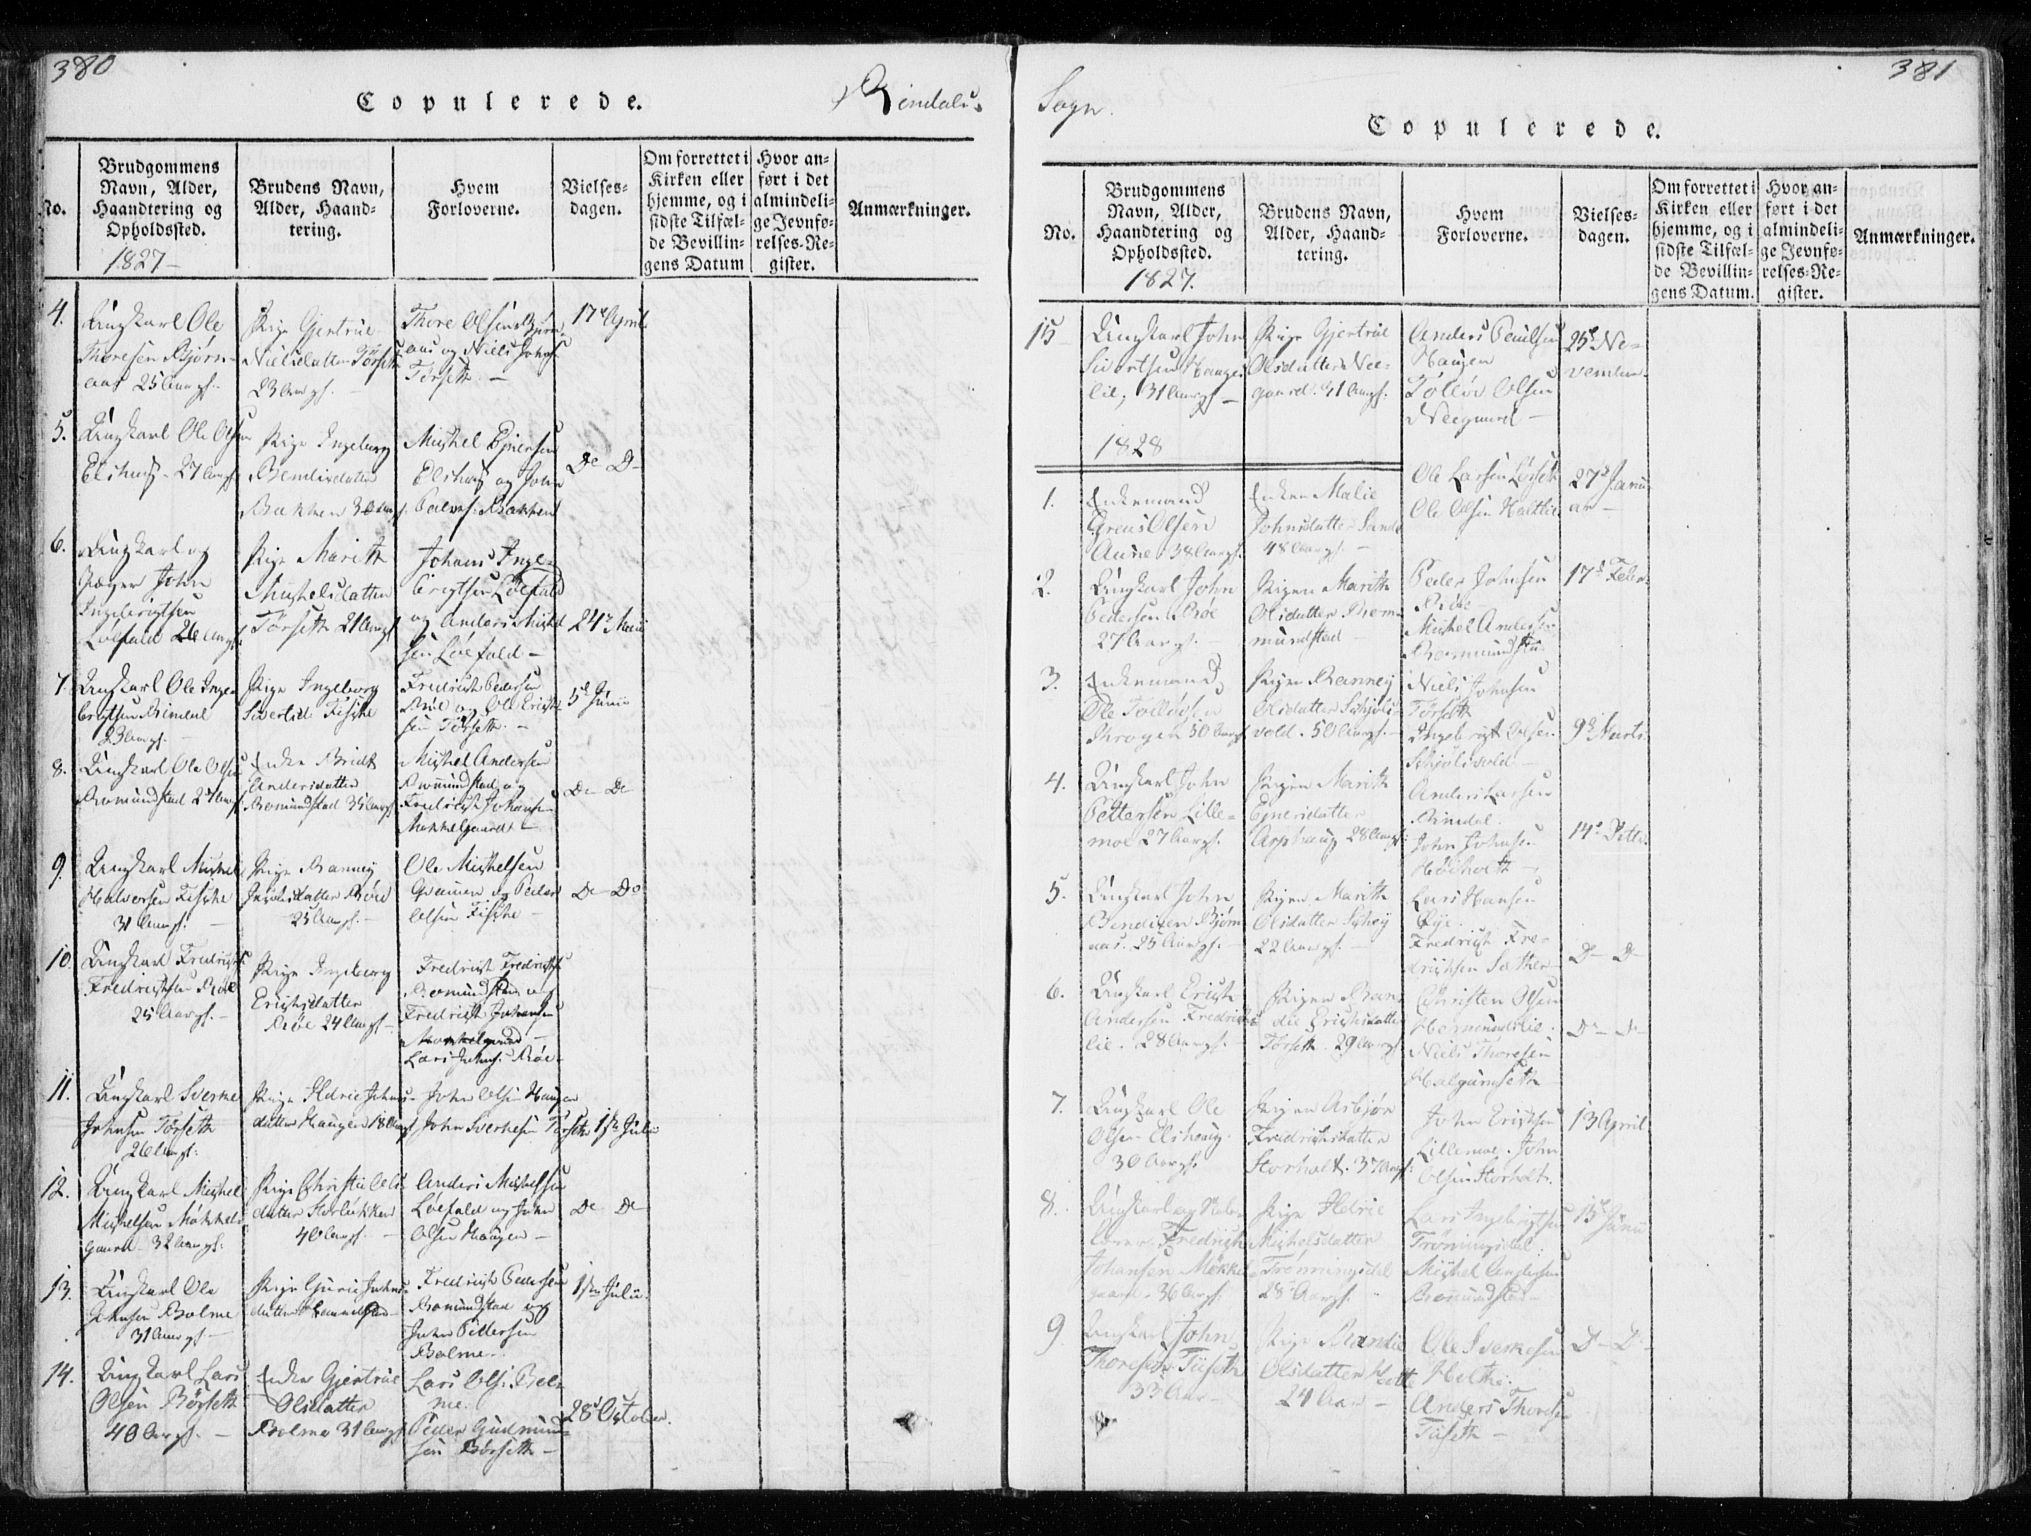 380
Copulerede.
Rindals
No.
Brudgommens Navn, Alder, Haandtering og Opholdssted.
Brudens Navn, Alder, Haandtering.
Hvem Forloverne.
Vielses-dagen.
Om forrettet i Kirken eller hjemme, og i sidste Tilfælde Bevillingens Datum
Hvor anført i det almindelige Jevnførelses-Register.
Anmærkninger.
1827
4.
Ungkarl Ole
Thoresen Bjørn-
aas 25 Aargl.
Pige Gjertrue
Nielsdatter Törseth
23 Aargl.
Thore Olsen Bjørn-
aas og Niels Johns.
Törseth
17de April
5.
Ungkarl Ole Olsen
Elshaug 27 Aargl.
Pige Ingeborg
Bendixdatter
Bakken 30 Aargl.
Mikkel Ejnersen
Elshaug og John
Bakken
De D
6.
Ungkarl og
Jæger John
Ingebrigtsen
Löefald 26 Aargl.
Pige Marith
Mikkelsdatter
Törseth 21 Aargl.
Johans Inge-
brigtsen Löefald
og Anders Mikkel-
sen Löefald
24de Maii
7.
Ungkarl Ole Inge-
brigtsen Rindal
23 Aargl.
Pige Ingeborg
Sivertsd. Fiske
Fredrich Pedersen
Röe og Ole Erich-
sen Törseth
5te Junii
8.
Ungkarl Ole Olsen
Romundstad 27 Aargl.
Enke Bridt
Andersdatter
Romundstad 35 Aargl.
Mikkel Andersen
Romundstad og
Fredrich Johansen
Møkkelgaard
De De
9.
Ungkarl Mikkel
Halvorsen Fiske
31 Aargl.
Pige Ranney
Röen
25 Aargl.
Ole Mikkelsen
og Peder
Olsen Fiske
De De
10.
Ungkarl Fredrich
Fredrichsen Röe
25 Aargl.
Pige Ingeborg
Erichsdatter
Röe 24 Aargl.
Fredrich Fredrichs.
Romundstad og
Fredrich Johansen
Møkkelgaard
Lars Johns. Röe
11.
Ungkarl Sverke
Johnsen Törseth
26 Aargl.
Pige Eldrie Johns-
datter Haugen 18 Aargl.
John Olsen Haugen
John Sverkesen Törseth
1ste Julii
12.
Ungkarl Mikkel
Mikkelsen Møkkel-
gaard 32 Aargl.
Pige Christie Ols-
datter Storløkken
40 Aargl.
Anders Mikkelsen
Löefald og John
Olsen Haugen
De De
13.
Ungkarl Ole
Johnsen Bolme
31 Aargl.
Pige Guri Johns-
datter
Fredrich Pedersen
Romundstad og
John Pettersen
Bolme
1ste Julii
14.
Ungkarl Lars
Olsen Börseth
40 Aargl.
Enke Gjertrue
Olsdatter
Bolme 31 Aargl.
Lars Ols. Bol-
me.
Peder Gudmund-
sen Börseth
28de October.
381
Sogn.
Copulerede.
No.
Brudgommens Navn, Alder, Haandtering og Opholdssted.
Brudens Navn, Alder, Haandtering.
Hvem Forloverne.
Vielses-dagen.
Om forrettet i Kirken eller hjemme, og i sidste Tilfælde Bevillingens Datum.
Hvor anført i det almindelige Jevnførelses-Register.
Anmærkninger.
1827.
15
Ungkarl John
Sivertsen Hauge-
lie, 31 Aargl.
Pige Gjertrue
Olsdatter Nee-
gaard. 31 Aargl.
Anders Paulsen
Haugen
Tolløv Olsen
Neegaard
25de No-
vember
1828
1.
Enkemand
Olsen
Aune 38 Aargl.
Enken Malie
Johnsdatter Sande
48 Aargl.
Ole Larsen Lörseth
Ole Olsen Heltlie
27de Janu-
ar
2.
Ungkarl John
Pedersen Röe
27 Aargl.
Pigen Marith
Olsdatter Rom-
mundstad
Peder Johnsen
Röe
Mikkel Andersen
Romundstad
17de Febr.
3.
Enkemand
Ole Tollövsen
Krogen 50 Aargl.
Pigen Ranney
Olsdatter Skjöls-
vold. 50 Aargl.
Niels Johnsen
Törseth
Ingebrigt Olsen
Skjölsvold
9de Marts
4.
Ungkarl John
Pettersen Lille-
moe 27 Aargl.
Pigen Marith
Ejnersdatter
Asphaug 28 Aargl.
Anders Larsen
Rindal.
John Johnsen
14de
5.
Ungkarl John
Bendixen Bjørn-
aas. 25 Aargl.
Pigen Marith
Olsdatter
22 Aargl.
Lars Hansen
Øye.
Fredrich Fre-
drichsen Sæther
De De
6.
Ungkarl Erich
Andersen Fredrichs-
lie. 28 Aargl.
Pigen Ran-
die Erichsdatter
Törseth. 29 Aargl.
Christen Olsen
Hermundslie.
Niels Thoresen
Halgunseth
De De
7.
Ungkarl Ole
Olsen Elshaug
30 Aargl.
Pigen Asbjør
Fredrichsdatter
Storholt. 37 Aargl.
John Erichsen
Lillemoe. John
Olsen Storholt.
13 April
8.
Ungkarl og Skole-
lærer Fredrich
Johansen Møkkel-
gaard. 36 Aargl.
Pige Eldrie
Mikkelsdatter
Trönningsdal
28 Aargl.
Lars Ingebrigtsen
Trönningsdal
Mikkel Andersen
Romundstad
15de Junii
9
Ungkarl John
Thoresen Tüseth
33 Aar
Pige Randie
Olsdatter Helte
24 Aar
Ole Sverkesen
Helte.
Anders Thoresen
Tüseth
D D